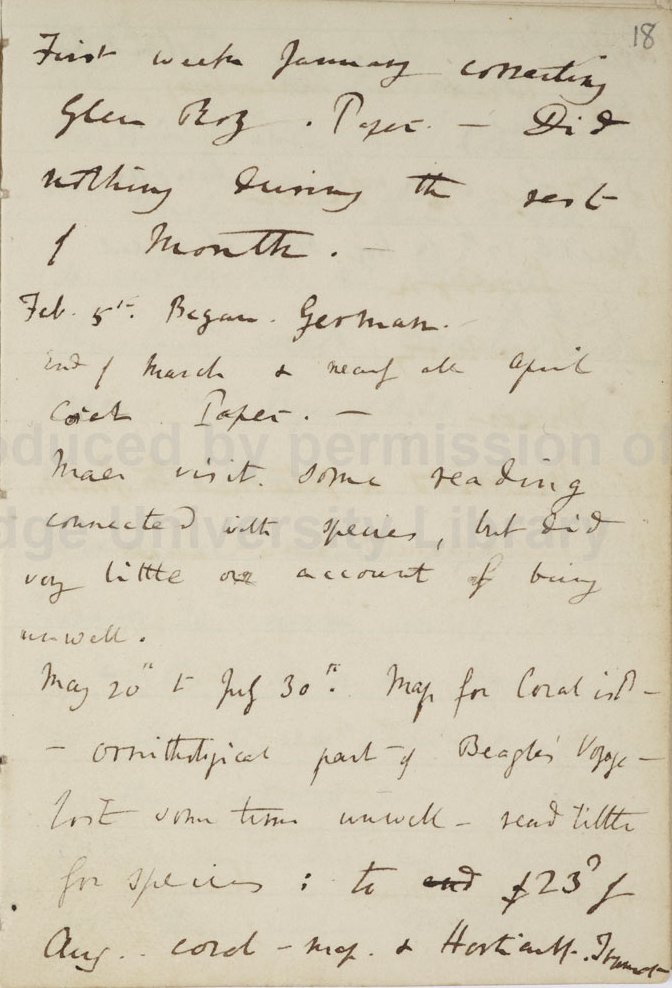 18
First week January correcting
Glen Roy. Paper. — Did
nothing during the rest
of Month. —
Feb. 5th. Began. German.
End of March & nearly all April
Coral Paper. —
oduced by permission of
Maer visit. Some reading
connected with species, but did
dge University Library
very little on account of being
unwell.
May 20th to July 30th. Map for Coral isld —
— ornithological part of Beagle's Voyage —
lost some time unwell — read little
for species: to end of 23d of
Aug. coral-map. & Horticult. Transact